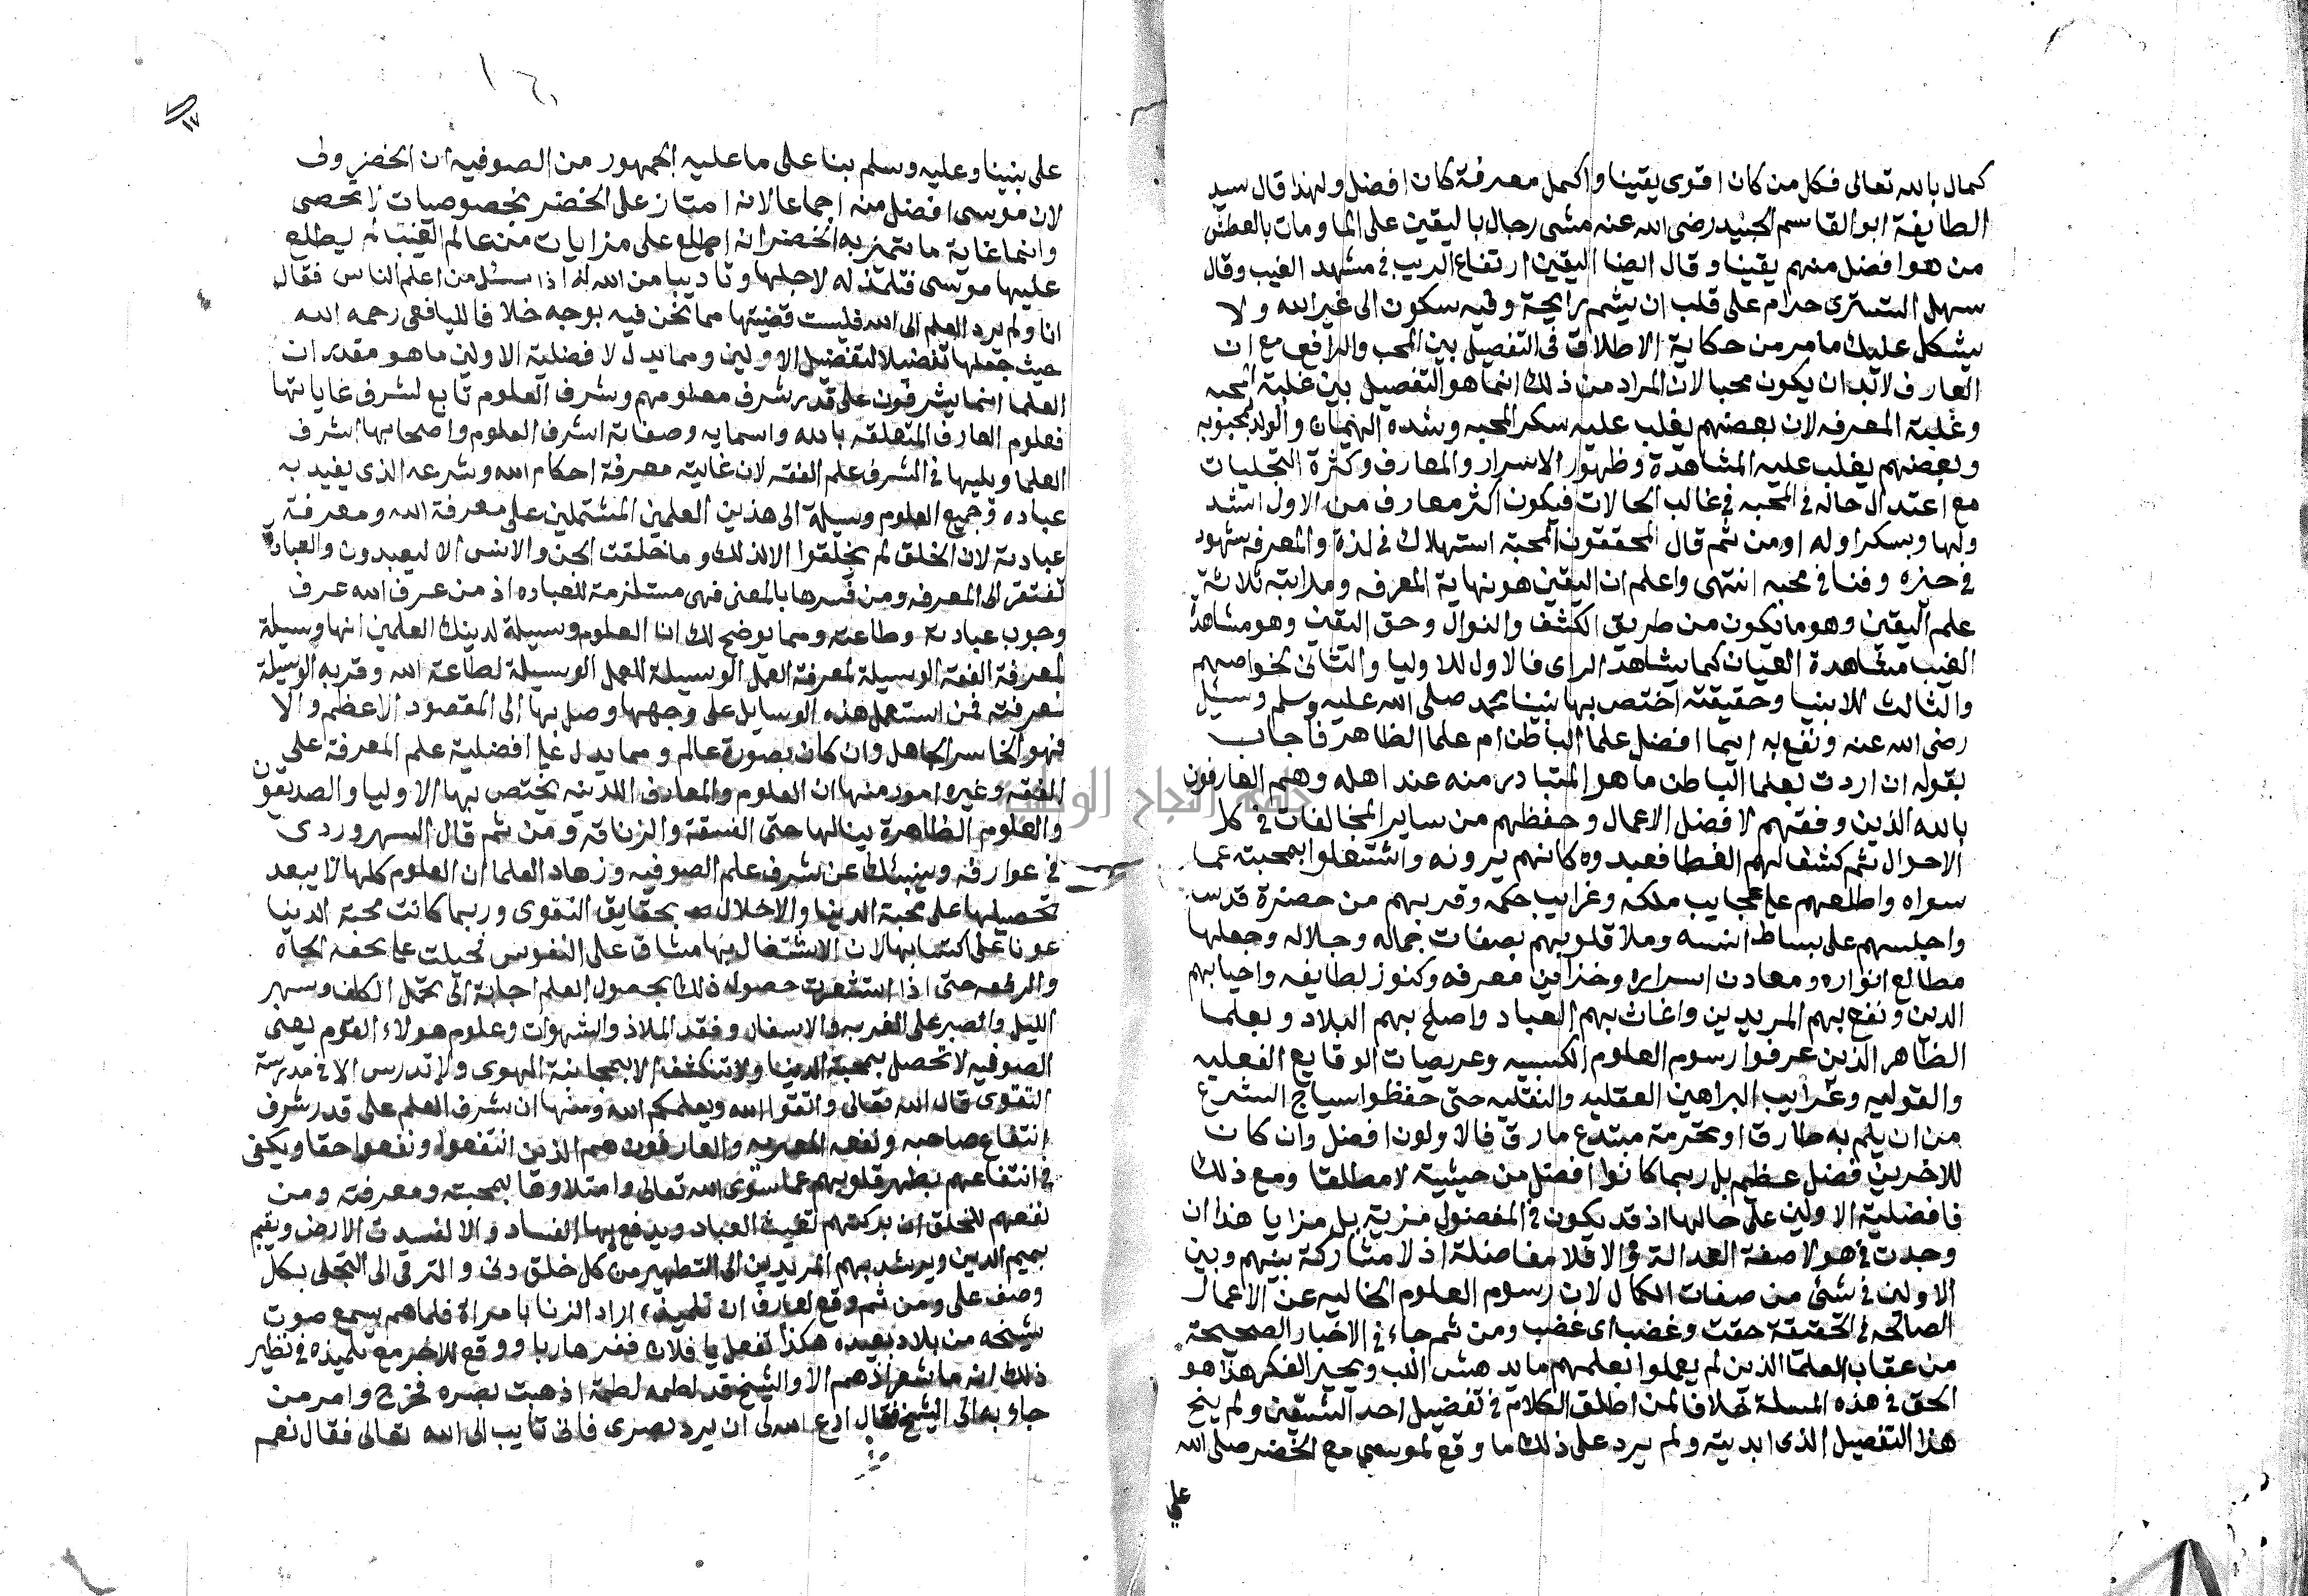 كمال بالله تعالى فكل من كان اقوى يقينا واكمل معرفة كان افضل ولهذا قال سيد
الطايفة ابو القاسم الجنيد رضى الله عنه مشى رجال باليقين على الما ومات بالعطش
من هو افضل منهم يقينا وقال ايضا اليقين ارتفاع الريب فى مشهد الغيب وقال
سهل التسترى حرام على قلب ان يشم رايحة وفيه سكون الى غير الله ولا
يشكل عليك ما مر من حكاية الاطلاق فى التفضيل بين المحب والعارف مع ان
العارف لا بد ان يكون محبا لان المراد من ذلك انما هو التفضيل بين غلبة المحبه
وغلبة المعرفه لان بعضهم يغلب عليه سكر المحبه وشده الهيمان والوله بمحبوبه
وبعضهم يغلب عليه المشاهدة وظهور الاسرار والمعارف وكثرة التجليات
مع اعتدال حاله فى المحبه فى غالب الحالات فيكون اكثر معارف من الاول اشد
ولها وسكرا وله ومن ثم قال المحققون المحبة استهلاك فى لذة والمعرفه شهود
فى حيره وفنا فى محبه انتهى واعلم ان اليقين هو نهاية المعرفه ومراتبه ثلاثة
علم اليقين وهو ما يكون من طريق الكشف والنوال وحق اليقين وهو مشاهدة
الغيب مشاهدة العيان كما يشاهد الراى فالاول للاوليا والثانى لخواصهم
والثالث للانبيا وحقيقته اختص بها نبينا محمد صلى الله عليه وسلم وسئل
رضى الله عنه ونفع به ايما افضل علما الباطن ام علما الظاهر فاجاب
بقوله ان اردت بعلما الباطن ما هو المتبادر منه عند اهله وهم العارفون
بالله الذين وفقهم لافضل الاعمال وحفظهم من ساير المخالفات فى كل
الاحوال ثم كشف لهم الغطا فعبدوه كانهم يرونه واشتغلوا بمحبته عما
سواه واطلعهم على عجايب ملكه وغرايب حكمه وقربهم من حضرة قدسه
واجلسهم على بساط انسه وملا قلوبهم بصفات جماله وجلاله وجعلها
مطالع انواره ومعادن اسراره وخزاين معرفه وكنوز لطايفه واحيا بهم
الدين ونفع بهم المريدين واغاث بهم العباد واصلح بهم البلاد وبعلما
الظاهر الذين عرفوا رسوم العلوم الكسبيه وعريصات الوقايع الفعليه
والقوليه وغرايب البراهين العقليه والنقليه حتى حفظوا سياج الشرع
من ان يلم به طارق او يخرمة مبتدع مارق فالاولون افضل وان كان
للاخرين فضل عظيم بل ربما كانوا افضل من حيثية لا مطلقا ومع ذلك
فافضلية الاولين على حالها اذ قد يكون فى المفضول مزية بل مزايا هذا ان
وجدت فى هولا صفة العدالة والا فلا مفاضلة اذ لا مشاركة بينهم وبين
الاولين فى شئ من صفات الكمال لان رسوم العلوم الخاليه عن الاعمال
الصالحه فى الحقيقة مقت وغضب اى غضب ومن ثم جاء فى الاخبار الصحيحة
من عقاب العلما الذين لم يعملوا بعلمهم ما يدهش اللب ويحير الفكر هذا هو
الحق فى هذه المسلة خلافا لمن اطلق الكلام فى تفضيل احد الشيقين ولم ينح
هذا التفصيل الذى ابديته ولم يرد على ذلك ما وقع لموسى مع الخضر صلى الله
على
على نبينا وعليه وسلم بنا على ما عليه الجمهور من الصوفيه ان الخضر ولى
لان موسى افضل منه اجماعا لانه امتاز على الخضر بخصوصيات لا تحصى
وانما غاية ما تميز به الخضر انه اطلع على مزايات من عالم الغيب لم يطلع
عليها موسى فتلمذ له لاجلها وتاديبا من الله له اذ سئل من اعلم الناس فقال
انا ولم يرد العلم الى الله فليست قضيتها مما نحن فيه بوجه خلافا لليافعى رحمه الله
حيث جعلها تفضيلا لتفضيل الاولين ومما يدل لافضلية الاولين ما هو مقدر ان
العلما انما يشرفون على قدر شرف معلومهم وشرف العلوم تابع لشرف غاياتها
فعلوم العارف المتعلقه بالله واسمايه وصفاته اشرف العلوم واصحابها اشرف
العلما ويليها فى الشرف علم الفقه لان غايته معرفة احكام الله وشرعه الذى يفيد به
عباده وجميع العلوم وسيلة الى هذين العلمين المشتملين على معرفة الله ومعرفة
عبادته لان الخلق لم يخلقوا الا لذلك وما خلقت الجن والانس الا ليعبدون والعباد
تفتقر الى المعرفه ومن فسرها بالمعنى فهى مستلزمة للعباده اذ من عرف الله عرف
وجوب عبادته وطاعته ومما يوضح لك ان العلوم وسيلة لدينك العلمين انها وسيلة
لمعرفة الفقه الوسيلة لمعرفة العمل الوسيلة للعمل الوسيلة لطاعة الله وقربه الوسيلة
لمعرفته فمن استعمل هذه الوسايل على وجهها وصل بها الى المقصود الاعظم والا
فهو الخاسر الجاهل وان كان بصورة عالم ومما يدل على افضلية علم المعرفة على
الفقه وغيره امور منها ان العلوم والمعارف اللدنيه يختص بها الاوليا والصديقون
والعلوم الظاهرة ينالها حتى الفسقة والزناقة ومن ثم قال السهروردى
فى عوارفه وينبئك عن شرف علم الصوفيه وزهاد العلما ان العلوم كلها لا يبعد
تحصيلها على محبة الدنيا والاخلال بحقايق التقوى وربما كانت محبة الدنيا
عونا على اكتسابها لان الاشتغال بها مشاق على النفوس فجبلت على محبة الجاه
والرفعه حتى اذا استشعرت حصول ذلك بحصول العلم اجابة الى تحمل الكلف وسهر
الليل والصبر على الغربه والاسفار وفقد الملاذ والشهوات وعلوم هولاء القوم يعنى
الصوفيه لا تحصل بمحبة الدنيا ولا تنكشف الا بمجانبة الهوى ولا تدرس الا فى مدرسة
التقوى قال الله تعالى واتقوا الله ويعلمكم الله ومنها ان شرف العلم على قدر شرف
انتفاع صاحبه ونفعه لغيره والعارفون هم الذين انتفعوا ونفعوا حقا ويكفى
فى انتفاعهم تطهر قلوبهم عما سوى الله تعالى وامتلاوها بمحبته ومعرفته ومن
نفعهم للخلق ان بركتهم تغيث العباد ويدفع بها الفساد والا لفسدت الارض ويقيم
بهم الدين ويرشد بهم المريدين الى التطهير من كل خلق دنى والترقى الى التجلى بكل
وصف على ومن ثم وقع لعارف ان تلميذه اراد الزنا بامراة فلما هم سمع صوت
شيخه من بلاد بعيده هكذا تفعل يا فلان ففر هاربا ووقع للاخر مع تلميذه فى نظير
ذلك انه ما شعر اذ هم الا والشيخ قد لطمه لطمة اذهبت بصره فخرج وامر من
جاء به الى الشيخ فقال ادع الله لى ان يرد بصرى فانى تايب الى الله تعالى فقال نعم
جامعة النجاح الوطنية